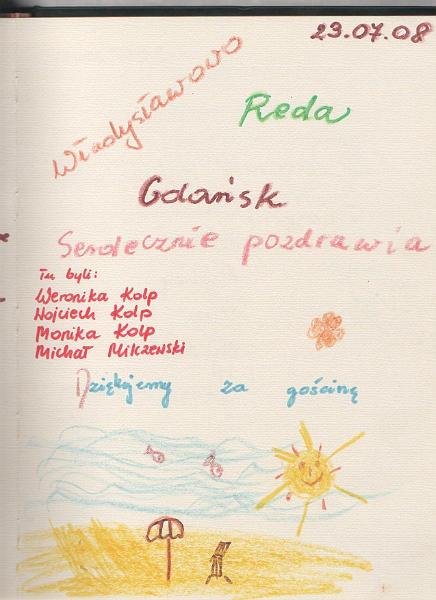 23.07.08
Władysławowo
Reda
Gdańsk
Serdecznie pozdrawia
Tu byli:
Weronika Kolp
Wojciech Kolp
Monika Kolp
Michał Milczewski
Dziękujemy za gościnę